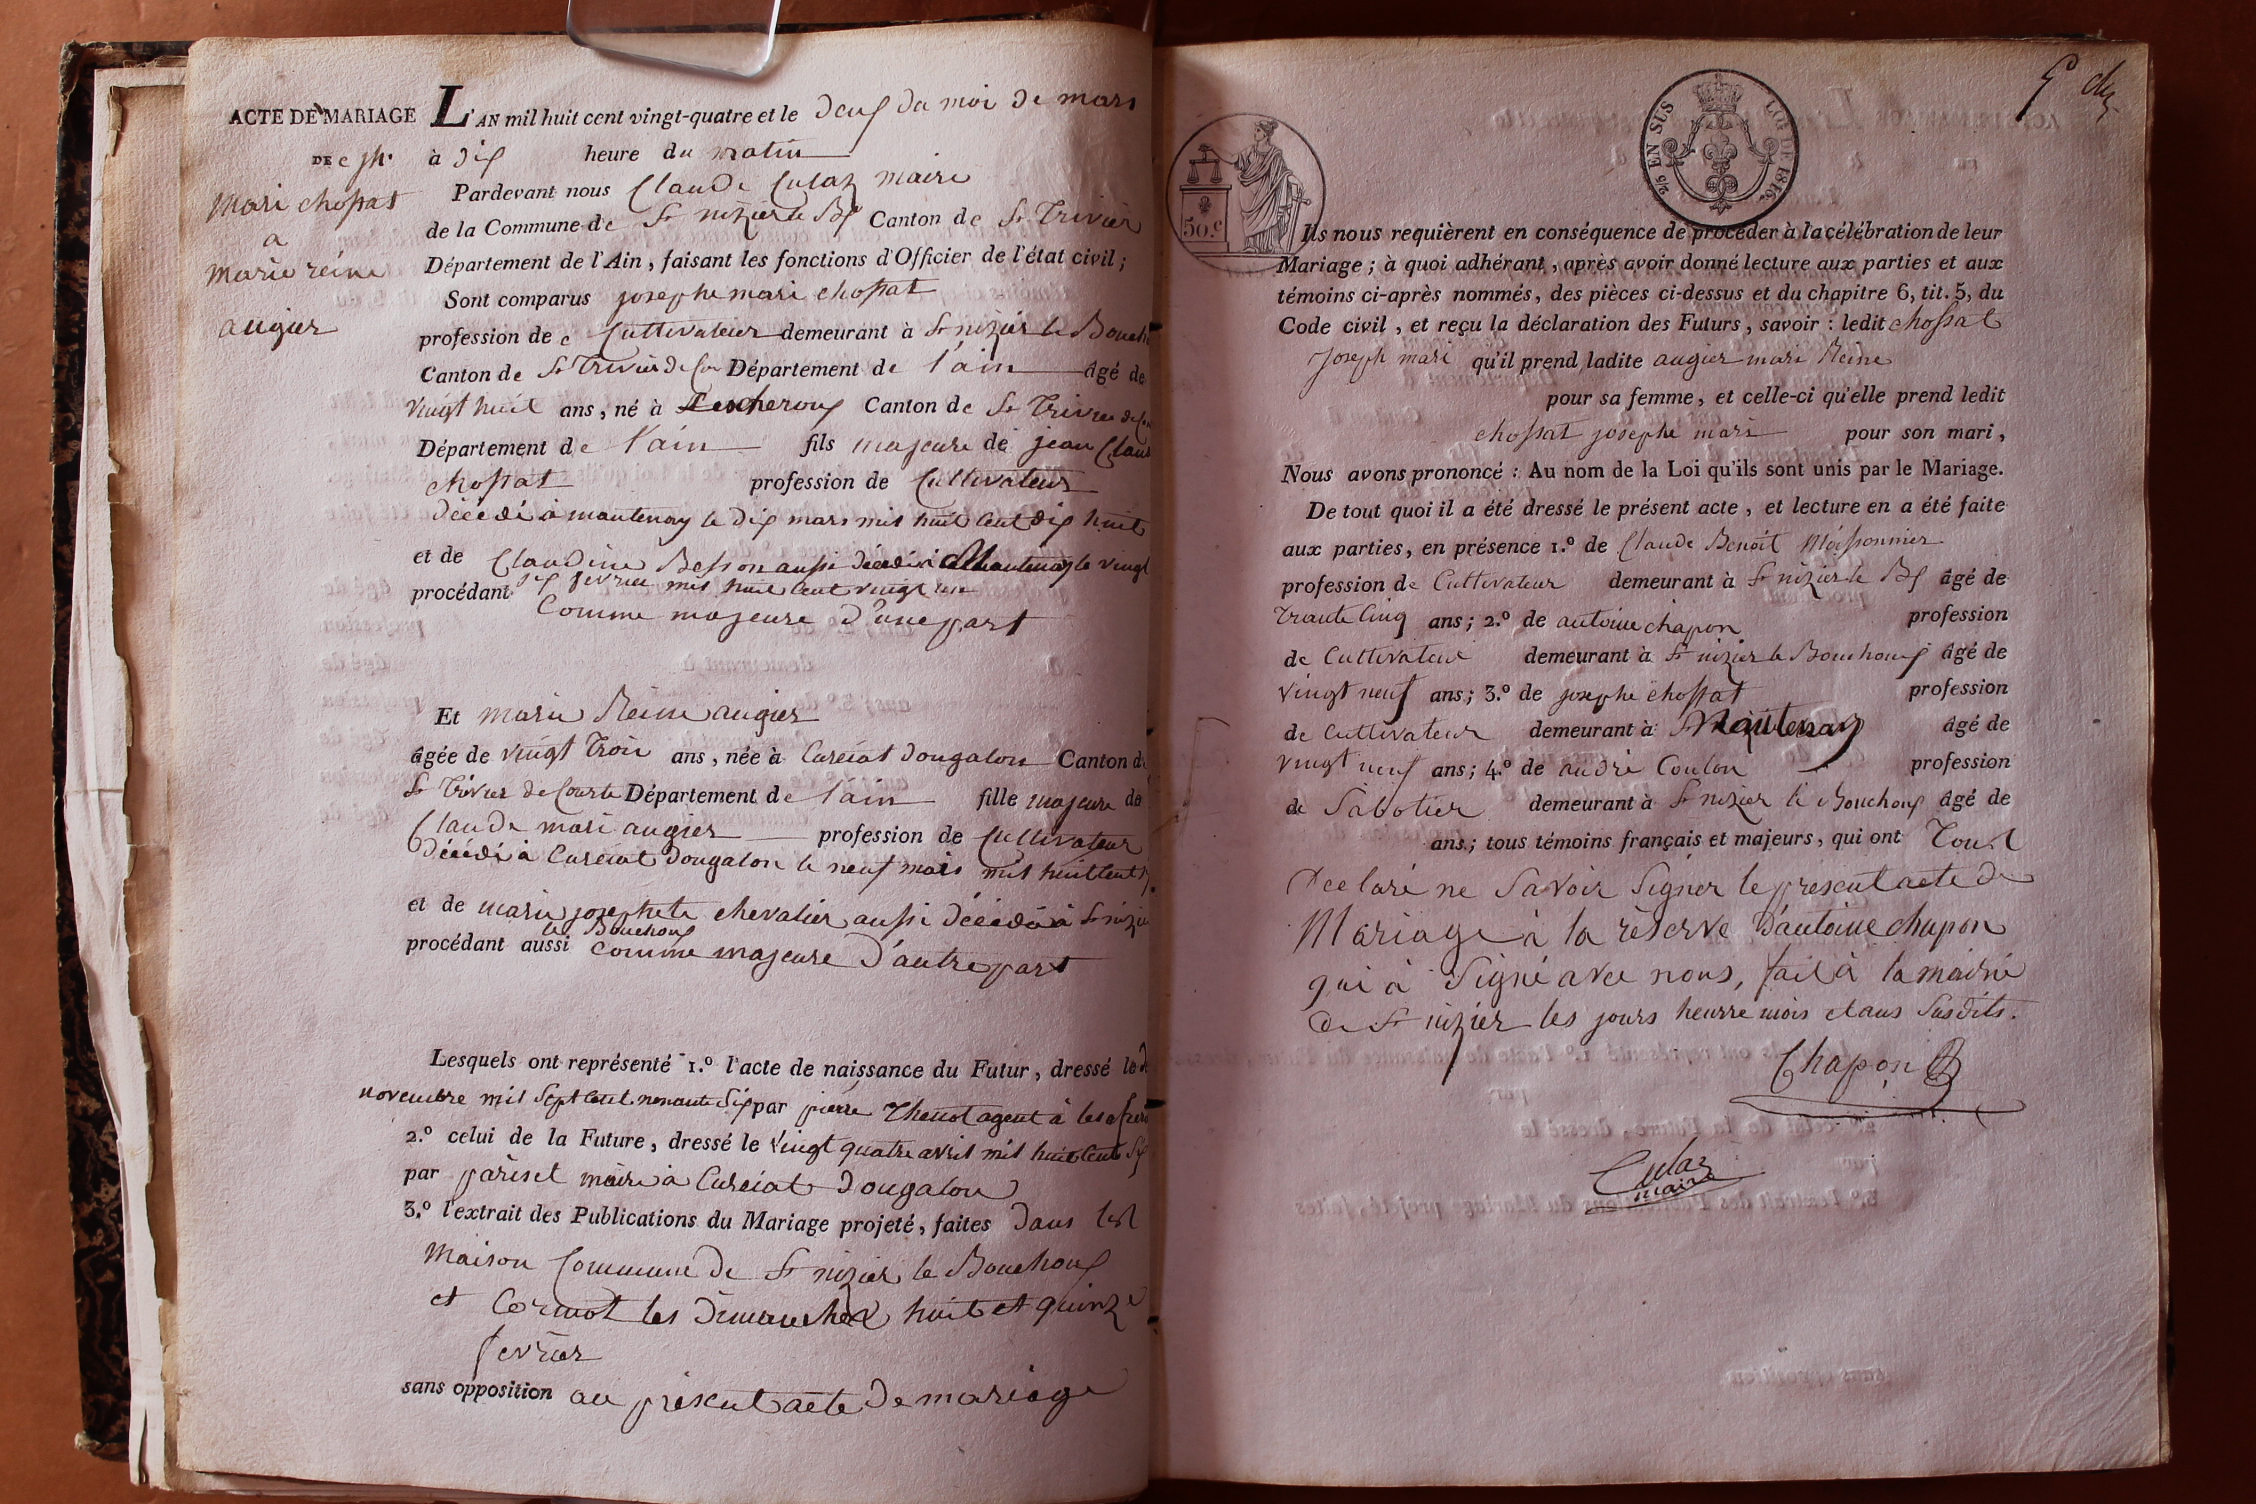 ACTE DE MARIAGE
DE
Mari chossat
a
marie réine
augier
L'AN mil huit cent vingt-quatre et le deux du moi de mars
à dix heure du matin
Pardevant nous Claude Culaz maire
de la Commune de St nizier le Bx Canton de St Trivier
Département de l'Ain, faisant les fonctions d'Officier de l'état civil;
Sont comparus josephe mari chossat
profession de Cultivateur demeurant à St nizier le Bouch
Canton de St Trivier de Cou Département de l'ain âgé de
vingt huit ans, né à Lescheroux Canton de St Trivier de
Département de l'ain fils majeure de jean Clau
chossat profession de Cultivateur
décédé à mantenay le dix mars mil huit Cent dix huit
et de Claudine Besson aussi décédé à Mantenay le vingt
six fevrier mil huit Cent vingt un
procédant Comme majeure d'une part
Et marie Reine augier
âgée de vingt Trois ans, née à Curciat dongalon Canton de
St Trivier de Courte Département de l'ain fille majeure de
Claude mari augier profession de Cultivateur
décédé à Curciat dongalon le neuf mars mil huit Cent
et de marie josephete chevalier aussi décédé à St nizie
le Bouchoux
procédant aussi comme majeure d'autre part
Lesquels ont représenté 1.º l'acte de naissance du Futur, dressé le
novembre mil Sept Cent nonante Six par pierre Thenot agent à
2.º celui de la Future, dressé le vingt quatre avril mil huit Cent
par pariset maire à Curciat dongalon
3.º l'extrait des Publications du Mariage projeté, faites dans
Maison Commune de St nizier le Bouchoux
et Cormot les dimanches huit et quinze
fevrier
sans opposition au présent acte de mariage
50.c
25 EN SUS LOI DE 1816.
Ils nous requièrent en conséquence de procéder à la célébration de leur
Mariage; à quoi adhérant, après avoir donné lecture aux parties et aux
témoins ci-après nommés, des pièces ci-dessus et du chapitre 6, tit. 5, du
Code civil, et reçu la déclaration des Futurs, savoir: ledit chossat
Joseph mari qu'il prend ladite augier mari Reine
pour sa femme, et celle-ci qu'elle prend ledit
chossat josephe mari pour son mari,
Nous avons prononcé: Au nom de la Loi qu'ils sont unis par le Mariage.
De tout quoi il a été dressé le présent acte, et lecture en a été faite
aux parties, en présence 1.º de Claude Benoit Moissonnier
profession de Cultivateur demeurant à St nizier le Bx âgé de
Traute Cinq ans; 2.º de antoine chapon profession
de Cultivateur demeurant à St nizier le Bouchoux âgé de
vingt neuf ans; 3.º de josephe chossat profession
de Cultivateur demeurant à Mantenay âgé de
vingt neuf ans; 4.º de andré Coulon profession
de Sabotier demeurant à St nizier le Bouchoux âgé de
ans; tous témoins français et majeurs, qui ont Tout
declaré ne Savoir Signer le present acte de
Mariage à la réserve d'antoine chapon
qui à Signé avec nous, fait à la mairie
de St nizier les jours heurre mois et ans Susdits.
Chapon
Culaz
maire